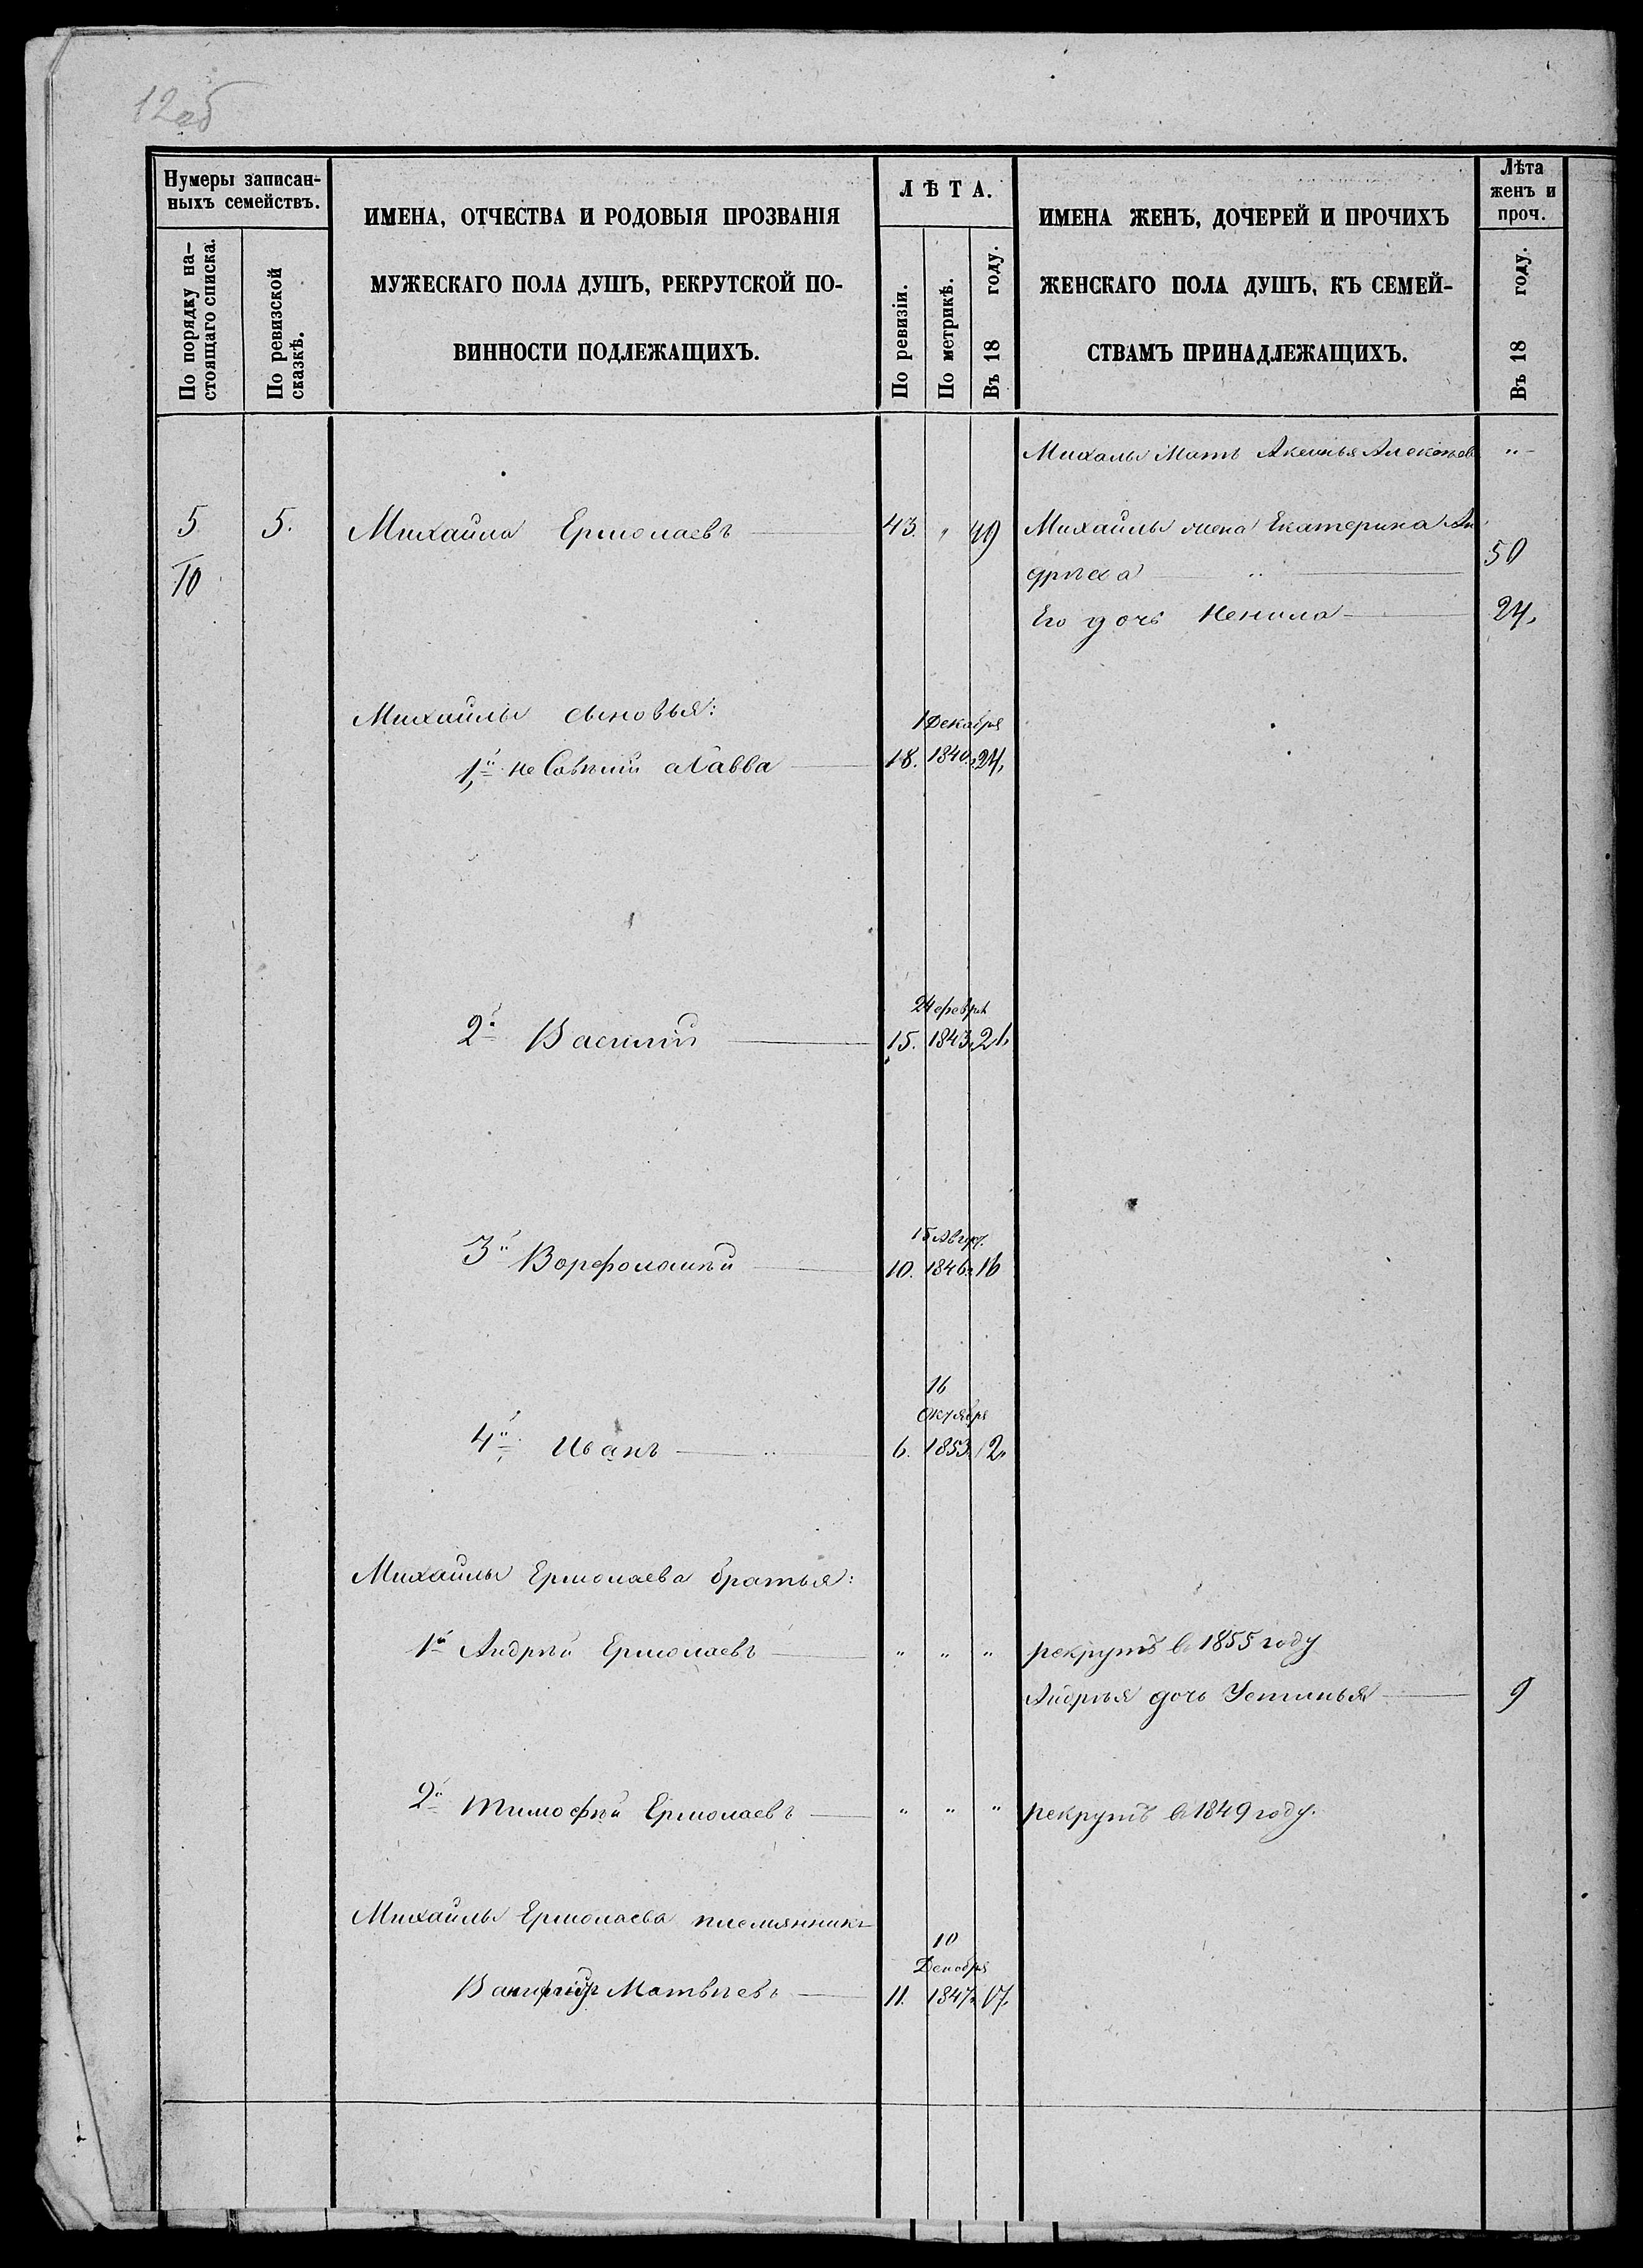 12об
Нумеры записан-
ныхъ семействъ.
По порядку на-
стоящаго списка.
По ревизской
сказкѣ.
ИМЕНА, ОТЧЕСТВА И РОДОВЫЯ ПРОЗВАНІЯ
МУЖЕСКАГО ПОЛА ДУШЪ, РЕКРУТСКОЙ ПО-
ВИННОСТИ ПОДЛЕЖАЩИХЪ.
ЛѢТА.
По ревизіи.
По метрикѣ.
Въ 18 году.
ИМЕНА ЖЕНЪ, ДОЧЕРЕЙ И ПРОЧИХЪ
ЖЕНСКАГО ПОЛА ДУШЪ, КЪ СЕМЕЙ-
СТВАМЪ ПРИНАДЛЕЖАЩИХЪ.
Лѣта
женъ и
проч.
Въ 18 году.
Михалы Мать "
5 5. Михаила Ермолаевъ 43. " 49 Михайлы жена Екатерина Ан
10 дрѣева " 50
Его дочь Ненила 24.
Михайлы сыновья: 1 Декабря
1й не а Савва 18. 1840. 24.
24 феврл
2й Василій 15. 1843. 21.
15 Авгус.
3й Ворфоломѣй 10. 1846. 16
16
Октября
4й Иванъ 6. 1853. 12.
Михайлы Ермолаева братья:
1й Андрѣй Ермолаевъ " " " рекрутъ в 1855 году
Андрѣя дочь Устинья 9
2й Тимофѣй Ермолаевъ " " " рекрутъ в 1849 году.
Михайлы Ермолаева племянникъ
10
Декобря
Матвѣевъ 11. 1847. 17.